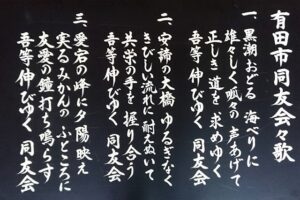 有田市同友会々歌
一、黒潮おどる 海べりに
雄々しく呱々の声あげて
正しき道を 求めゆく
吾等伸びゆく 同友会
二、安諦の大橋 ゆるぎなく
きびしい流れに耐えぬいて
共栄の手を 握り合う
吾等伸びゆく 同友会
三、愛宕の峰に 夕陽映え
実るみかんの ふところに
友愛の鐘打ち鳴らす
吾等伸びゆく 同友会